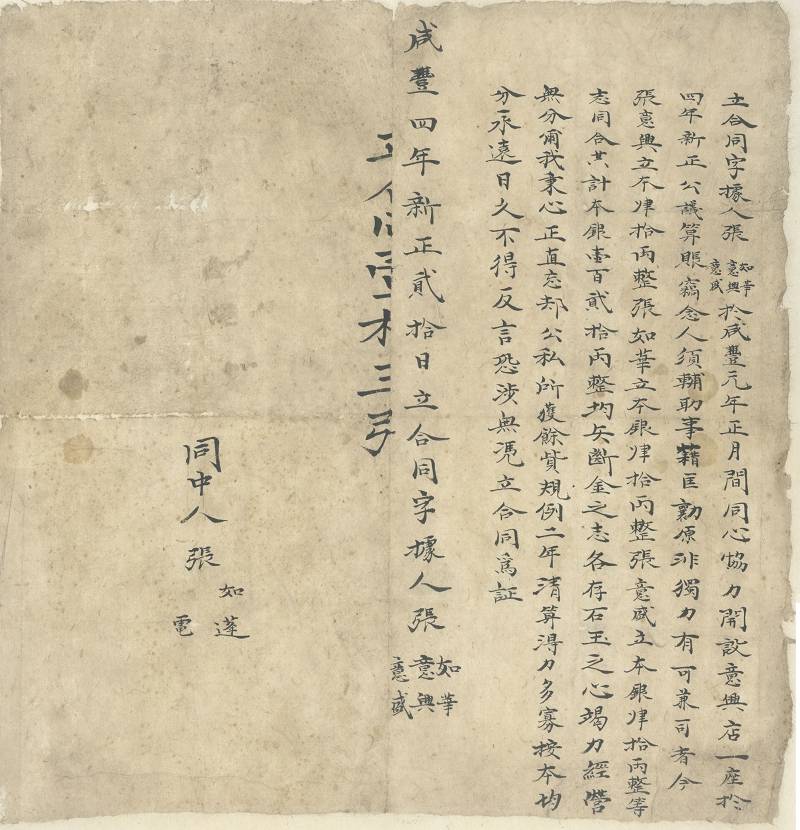 立合同字據人張如華意興意盛於咸豐元年正月間同心協力開設意興店一座於
四年新正公議算賬竊念人須輔助事藉匡勷原非獨力有可兼司者今
張意興立本肆拾両整張如華立本銀肆拾両整張意盛立本銀肆拾両整等
志同合共計本銀壹百貳拾両整均矢斷金之志各存石玉之心竭力經營
無分爾我秉心正直忘却公私所獲餘貲規例二年清算得力多寡按本均
分永遠日久不得反言恐涉無憑立合同為証
咸豐四年新正貳拾日立合同字據人張如華意興意盛
同中人張如蓮電